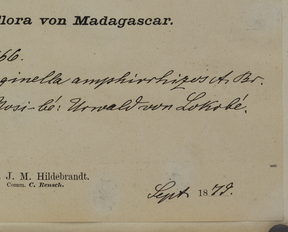 lora von Madagascar.
66.
ginella amphirrhizos A. Br.
Nosi-bé: Urwald von Lokobé.
J. M. Hildebrandt.
Comm. C. Rensch.
Sept. 1879.